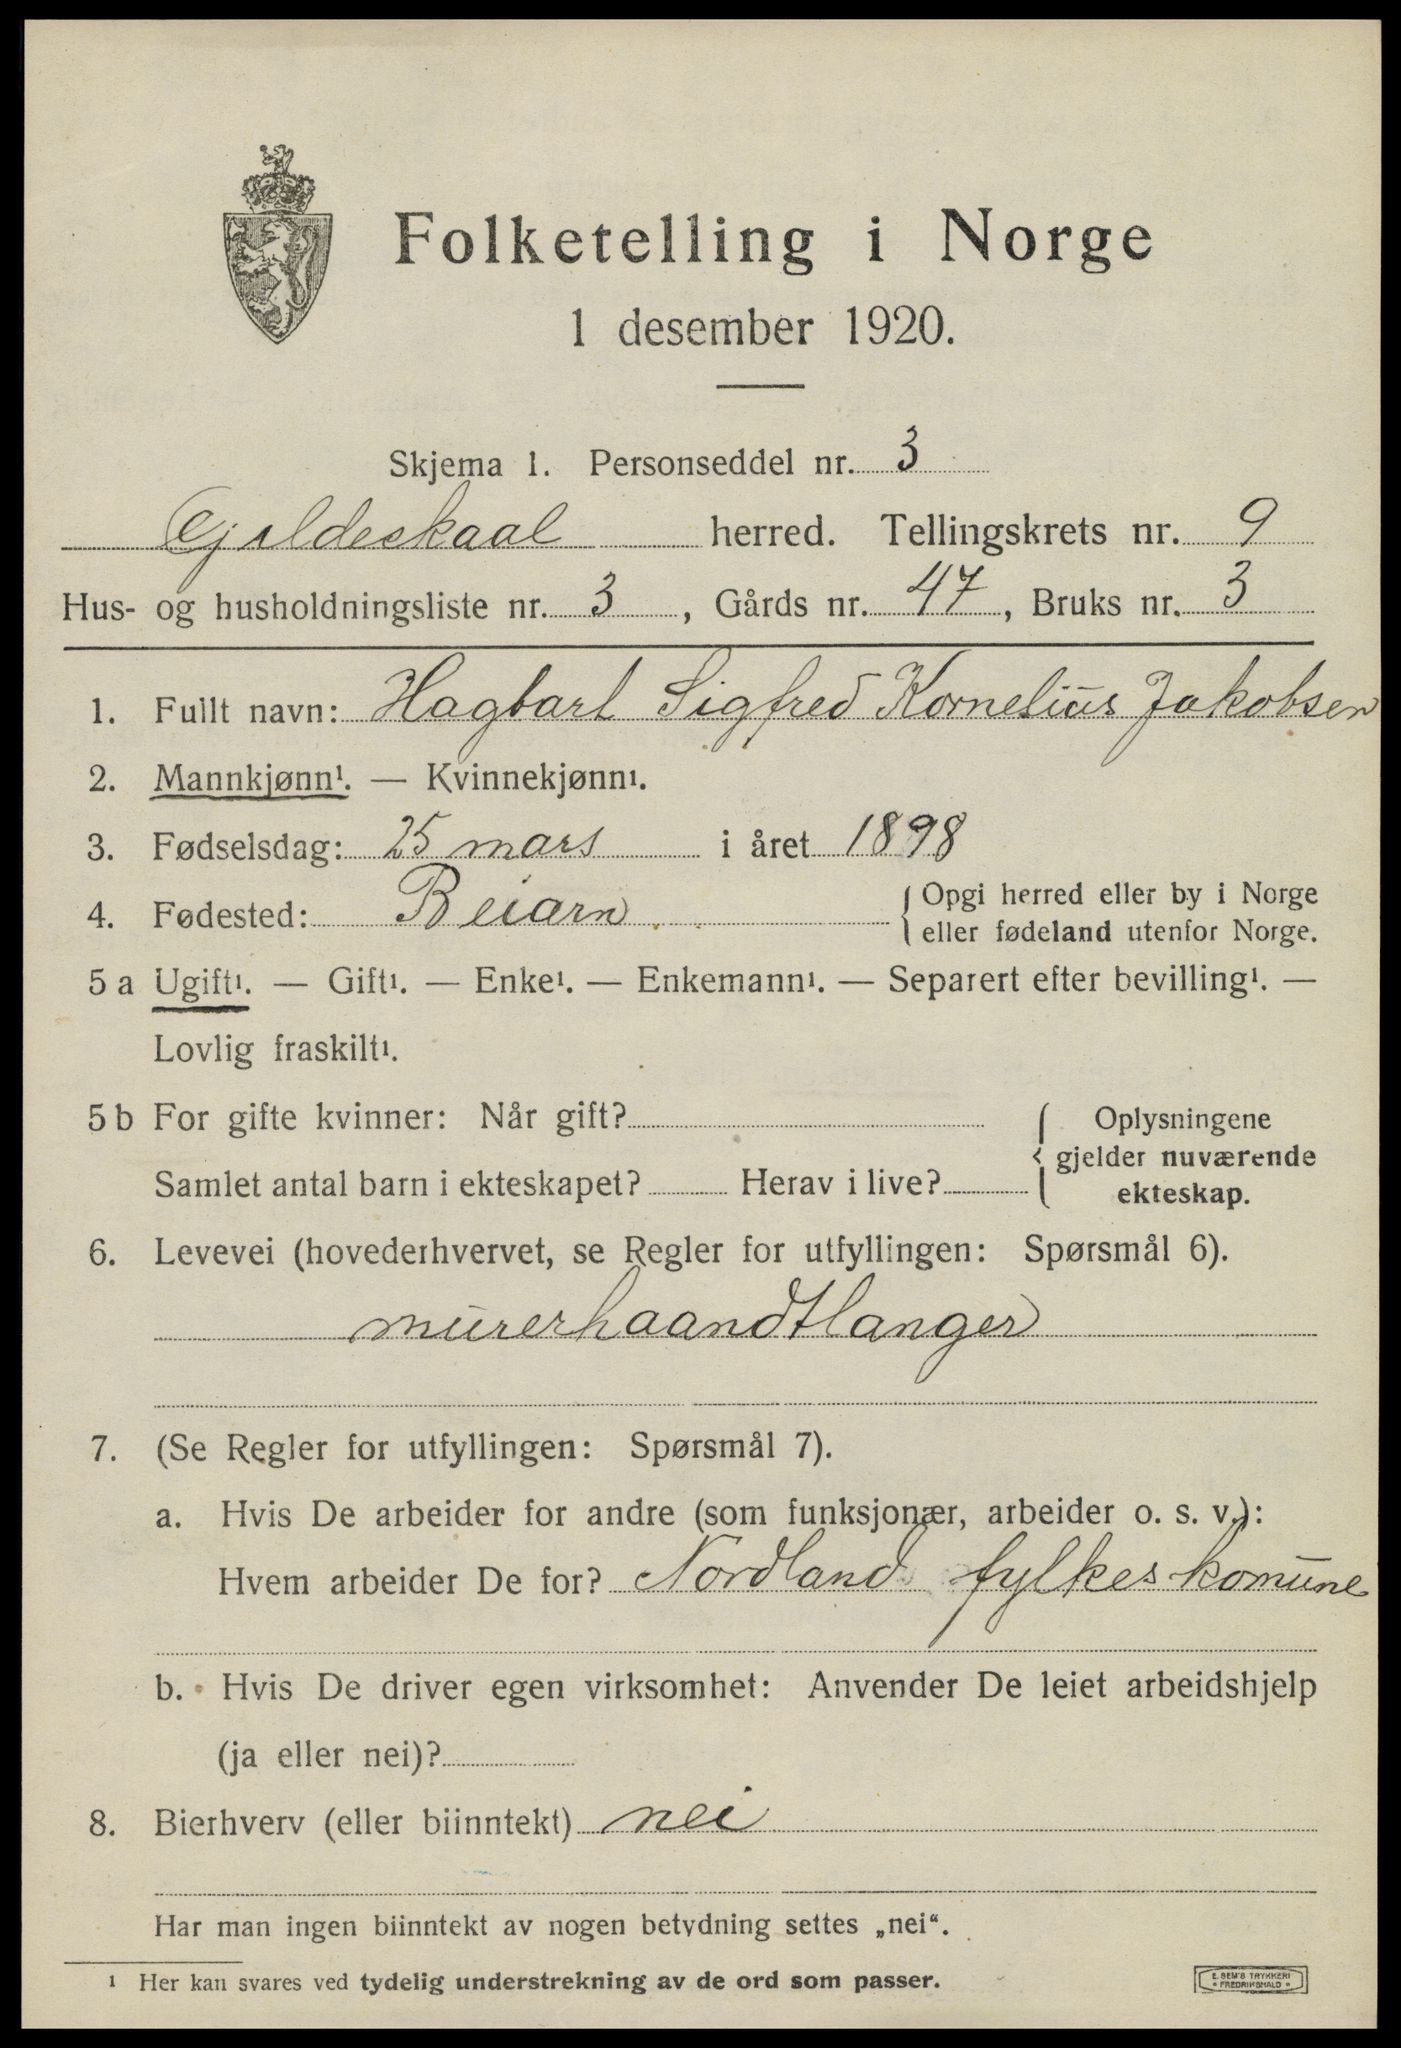 Folketelling i Norge
1 desember 1920.
Skjema 1. Personseddel nr. 3
Gildeskaal herred. Tellingskrets nr. 9
Hus- og husholdningsliste nr. 3, Gårds nr. 47, Bruks nr. 3
1. Fullt navn: Hagbart Sigfred Kornelius Jakobsen
2. Mannkjønn¹. — Kvinnekjønn¹.
3. Fødselsdag: 25 mars i året 1898
4. Fødested: Beiarn { Opgi herred eller by i Norge
eller fødeland utenfor Norge.
5 a Ugift¹. — Gift¹. — Enke¹. — Enkemann¹. — Separert efter bevilling¹. —
Lovlig fraskilt¹.
5 b For gifte kvinner: Når gift? { Oplysningene
gjelder nuværende
Samlet antal barn i ekteskapet? Herav i live? ekteskap.
6. Levevei (hovederhvervet, se Regler for utfyllingen: Spørsmål 6).
murerhaandtlanger
7. (Se Regler for utfyllingen: Spørsmål 7).
a. Hvis De arbeider for andre (som funksjonær, arbeider o. s. v.):
Hvem arbeider De for? Nordland fylkes komune
b. Hvis De driver egen virksomhet: Anvender De leiet arbeidshjelp
(ja eller nei)?
8. Bierhverv (eller biinntekt) nei
Har man ingen biinntekt av nogen betydning settes „nei“.
¹ Her kan svares ved tydelig understrekning av de ord som passer.
E. SEM'S TRYKKERI
* FREDRIKSHALD *